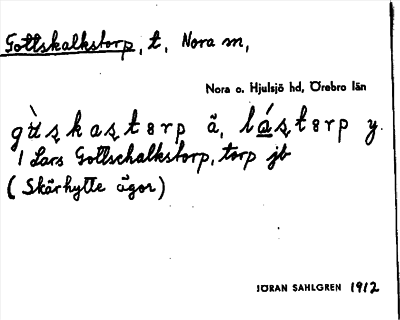 Gottskalkstorp, t, Nora m,
Nora o. Hjulsjö hd, Örebro län
gùskastorp ä, lástorp y.
1 Lars Gottschalkstorp, torp jb
(Skärhytte ägor)
JÖRAN SAHLGREN 1912